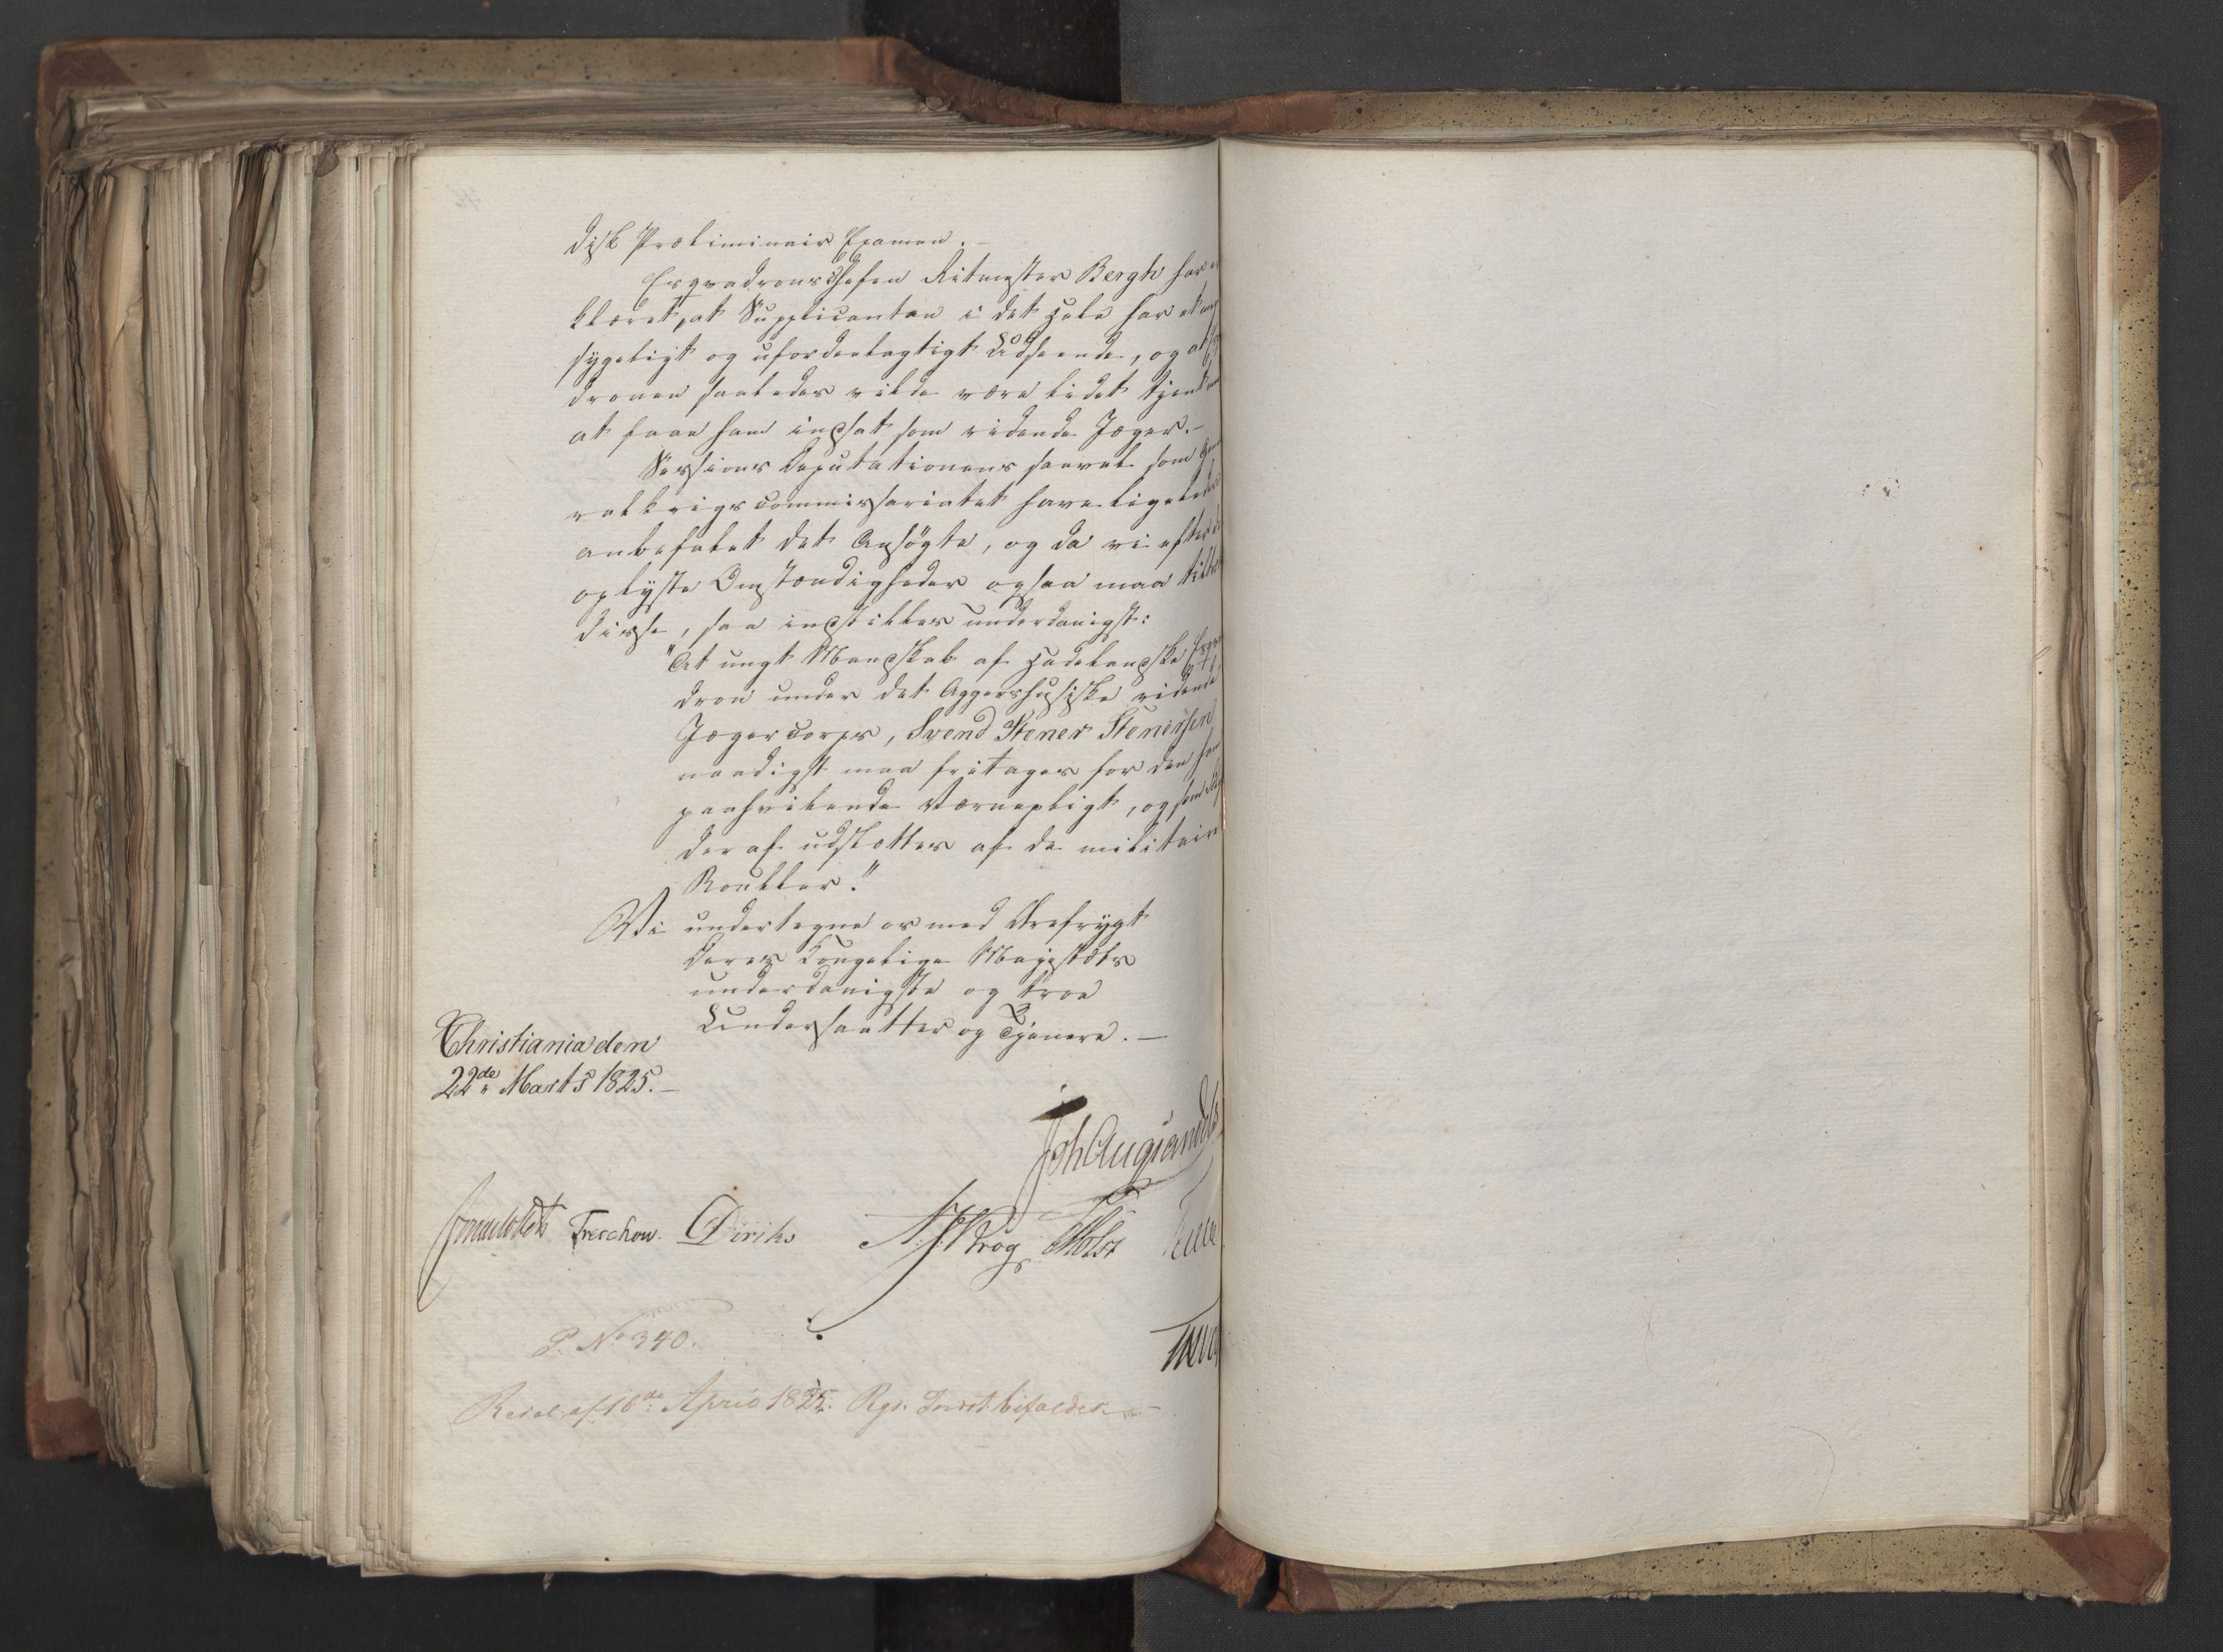 disk Præliminair Examen. –
Esqvadronschefen Ritmester Bergh har
klæret, at Supplicanten i det Hele har et
sygeligt og ufordeelagtigt Udseende, og at
dronen saaledes vilde være lidet tjent
at faae ham indsat som ridende Jæger. –
Sessions Deputationens saavel som
ralkrigscommissariatet have ligeledes
anbefalet det Ansøgte, og da vi efter
oplyste Omstændigheder ogsaa maa
disse, saa indstilles underdanigst:
"At ungt Mandskab af Hadelandske
dron under det Aggershusiske ridende
Jægercorps, Svend Stener Stenersen
naadigst maa fritages for den ham
paahvilende Værnepligt, og som
deraf udslettes af de militaire
Rouller."
Vi undertegne os med Ærefrygt
Deres Kongelige Majestæts
underdanigste og troe
Undersaatter og Tjenere. –
Christiania den
22de Marts 1825. –
Joh Aug Sandels
Sommerhielm Treschow. Diriks Krog Holst
P. No 340.
Resol. af 16de April 1825. Rgs. Indst. bifaldes